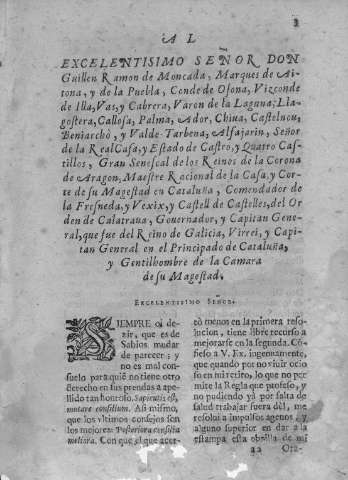 A L
EXCELENTISIMO SEÑOR DON
Guillen Ramon de Moncada, Marques de Ai-
tona, y de la Puebla, Conde de Osona, Vizconde
de Illa, Vas, y Cabrera, Varon de la Laguna, Lla-
gostera, Callosa, Palma, Ador, Chiua, Castelnou,
Beniarchò, y Valde-Tarbena, Alfajarin, Señor
de la Real Casa, y Estado de Castro, y Quatro Cas-
tillos, Gran Senescal de los Reinos de la Corona
de Aragon, Maestre Racional de la Casa, y Cor-
te de su Magestad en Cataluña, Comendador de
la Fresneda, y Vexix, y Castell de Castelles, del Or
den de Calatraua, Gouernador, y Capitan Gene-
ral, que fue del Reino de Galicia, Virrei, y Capi-
tan General en el Principado de Cataluña,
y Gentilhombre de la Camara
de su Magestad.
EXCELENTISIMO SEÑOR.
SIEMPRE oì de-
zir, que es de
Sabios mudar
de parecer; y
no es mal con-
suelo para quiẽ no tiene otro
derecho en sus prendas a ape-
llido tan honroso. Sapientis est,
mutare consilium. Asi mismo,
que los vltimos consejos son
los mejores: Posteriora consilia
meliora. Con que el que acer-
tò menos en la primera reso-
lucion, tiene libre recurso a
mejorarse en la segunda. Cõ-
fieso a V. Ex. ingenuamente,
que quando por no viuir ocio
so en mi retiro, lo que no per-
mite la Regla que profeso, y
no pudiendo yà por falta de
salud trabajar fuera dèl, me
resolui a impulsos agenos, y
alguno superior en dar a la
estampa esta obrilla de mi
aa Ora-